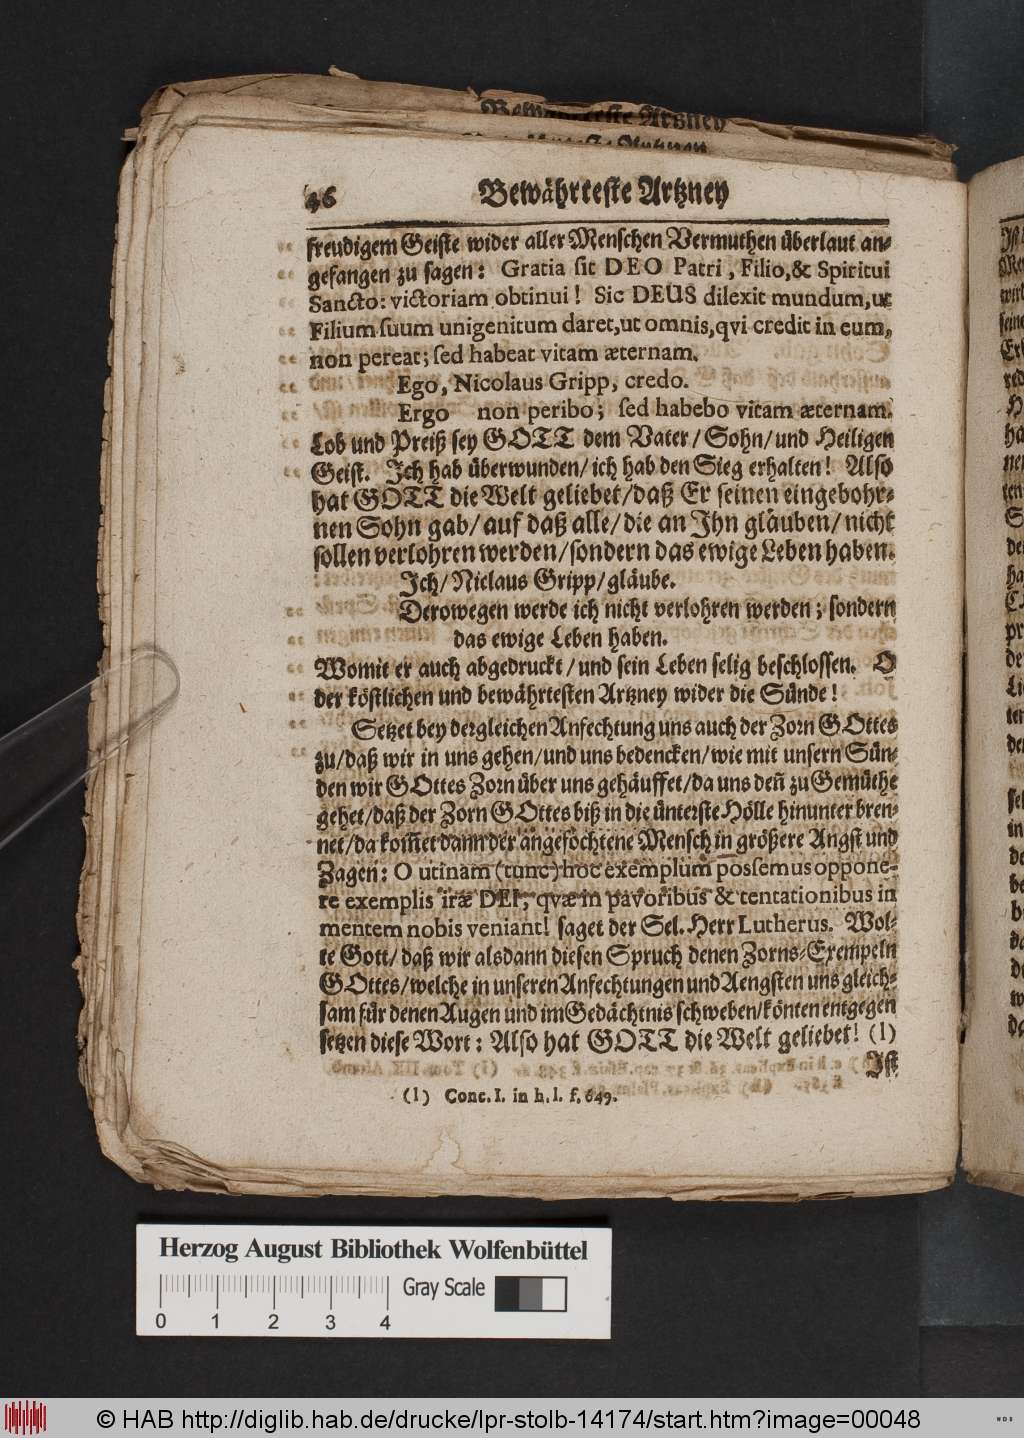 Bewährteste Artzney
46 Bewährteste Artzney
freudigem Geiste wider aller Menschen Vermuthen überlaut an-
gefangen zu sagen: Gratia sit DEO Patri, Filio, & Spiritui
Sancto: victoriam obtinui! Sic DEUS dilexit mundum, ut
Filium suum unigenitum daret, ut omnis, qvi credit in eum,
non pereat; sed habeat vitam æternam.
Ego, Nicolaus Gripp, credo.
Ergo non peribo; sed habebo vitam æternam.
Lob und Preiß sey GOTT dem Vater/ Sohn/ und Heiligen
Geist. Ich hab überwunden/ ich hab den Sieg erhalten! Also
hat GOTT die Welt geliebet/ daß Er seinen eingebohr-
nen Sohn gab/ auf daß alle/ die an Ihn gläuben/ nicht
sollen verlohren werden/ sondern das ewige Leben haben.
Ich/ Niclaus Gripp/ gläube.
Derowegen werde ich nicht verlohren werden; sondern
das ewige Leben haben.
Womit er auch abgedruckt/ und sein Leben selig beschlossen. O
der köstlichen und bewährtesten Artzney wider die Sünde!
Setzet bey dergleichen Anfechtung uns auch der Zorn GOttes
zu/ daß wir in uns gehen/ und uns bedencken/ wie mit unsern Sün-
den wir GOttes Zorn über uns gehäuffet/ da uns deñ zu Gemüthe
gehet/ daß der Zorn GOttes biß in die ünterste Hölle hinunter bren-
net/ da kom̃et dann der angefochtene Mensch in größere Angst und
Zagen: O utinam (tunc) hoc exemplum possemus oppone-
re exemplis iræ DEI, qvæ in pavoribus & tentationibus in
mentem nobis veniant! saget der Sel. Herr Lutherus. Wol-
te Gott/ daß wir alsdann diesen Spruch denen Zorns-Exempeln
GOttes/ welche in unseren Anfechtungen und Aengsten uns gleich-
sam für denen Augen und im Gedächtnis schweben/ könten entgegen
setzen diese Wort: Also hat GOTT die Welt geliebet! (l)
Ist
(l) Conc. I. in h. l. f. 649.
Herzog August Bibliothek Wolfenbüttel
Gray Scale
0 1 2 3 4
© HAB http://diglib.hab.de/drucke/lpr-stolb-14174/start.htm?image=00048